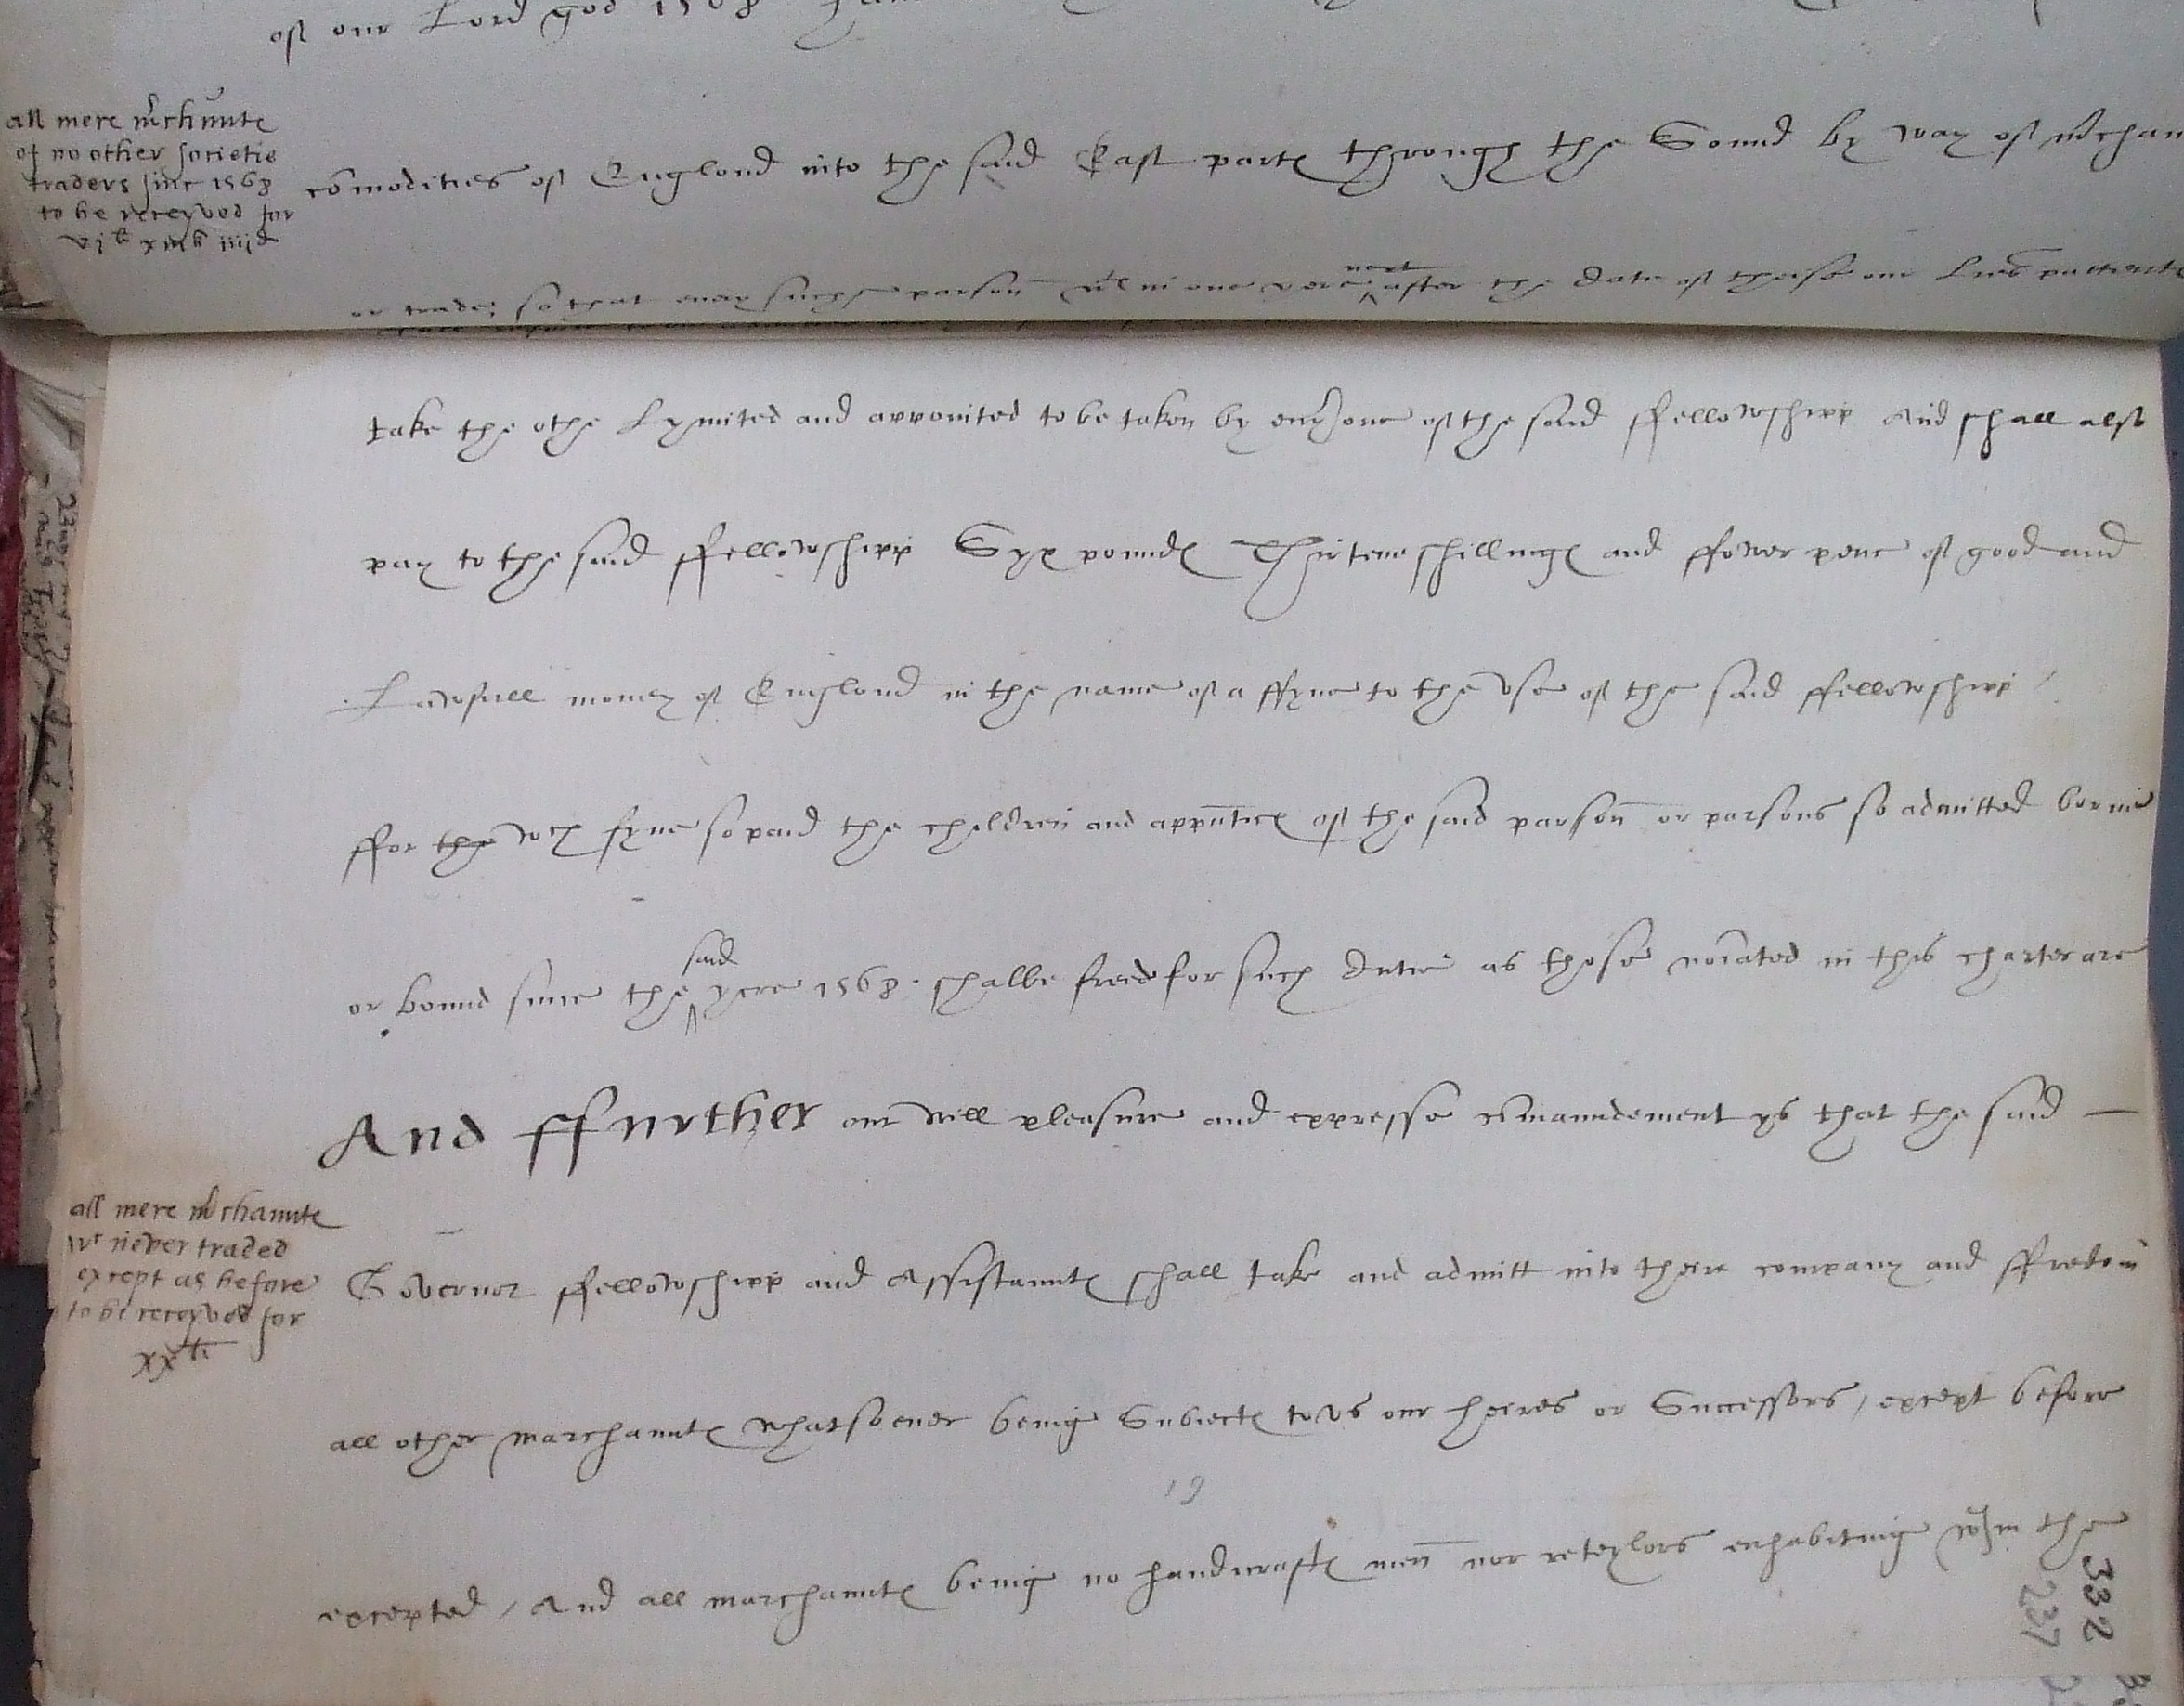 of our Lord god 1568
all mere mrchaunte
of no other societie
traders sinc 1568
to be receyved for
vjli xiijs iiijd
comodities of Englond into the said East parte through the Sound by way of mrchan
or trade; so that euery suche parson wtin one yere after the date of theise our lres pattente
next
take the othe Lymited and appointed to be taken by euery one of the said ffellowshipp And shall also
pay to the said ffellowshipp Syx pounde Thirtene shillinge and ffower penc of good and
Lawfull money of Englond in the name of a ffyne to the vse of the said ffellowshipp /
ffor the wch fyne so paid the children and apprntice of the said parson or parsons so admitted borne
or bound since the yere 1568. shalbe freed for such dutie as those noiated in this charter are
said
And ffurther our will pleasure and expresse comaundement ys that the said —
all mere mrchaunte
wt never traded
except as before
to be receyved for
xxli
Governor ffellowshipp and Assistaunte shall take and admitt into theire company and ffredom
all other marchaunte whatsoeuer being Subiecte to vs our heires or Successors / except before
19
excepted / And all marchaunte being no handicrafte men nor reteylors enhabiting wthin the
332
237